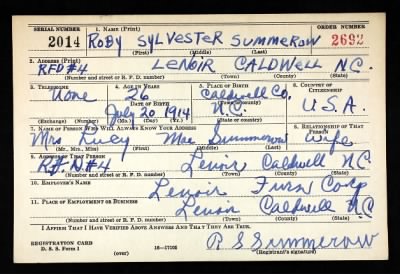 SERIAL NUMBER 1. NAME (Print) ORDER NUMBER
2014 ROBY SYLVESTER SUMMEROW 2692
(First) (Middle) (Last)
2. ADDRESS (Print)
RFD #4 LENOIR CALDWELL N.C.
(Number and street or R. F. D. number) (Town) (County) (State)
3. TELEPHONE 4. AGE IN YEARS 5. PLACE OF BIRTH 6. COUNTRY OF CITIZENSHIP
None 26 Caldwell Co.
DATE OF BIRTH (Town or county)
July 20 1914 N.C. U.S.A.
(Exchange) (Number) (Mo.) (Day) (Yr.) (State or country)
7. NAME OF PERSON WHO WILL ALWAYS KNOW YOUR ADDRESS 8. RELATIONSHIP OF THAT PERSON
Mrs Lucy Mae Summerow Wife
(Mr., Mrs., Miss) (First) (Middle) (Last)
9. ADDRESS OF THAT PERSON
R.F.D. #4 Lenoir Caldwell N.C.
(Number and street or R. F. D. number) (Town) (County) (State)
10. EMPLOYER'S NAME
Lenoir Furn Corp
11. PLACE OF EMPLOYMENT OR BUSINESS
Lenoir Caldwell N.C
(Number and street or R. F. D. number) (Town) (County) (State)
I AFFIRM THAT I HAVE VERIFIED ABOVE ANSWERS AND THAT THEY ARE TRUE.
REGISTRATION CARD
D. S. S. Form 1 16-17105 R S Summerow
(Registrant's signature)